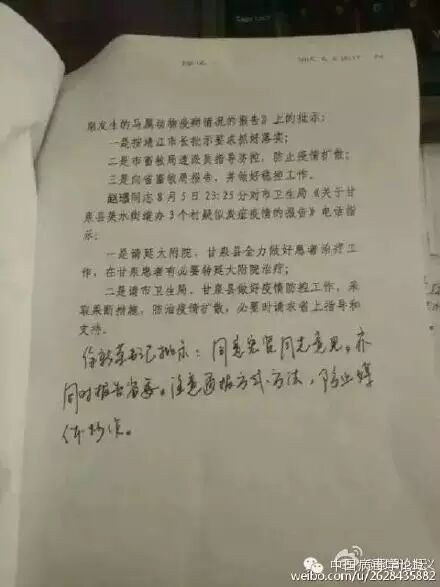 期发生的马属动物疫病情况的报告》上的批示:
一是按靖江市长批示要求抓好落实;
二是市畜牧局遣派员指导济控,防止疫情扩散;
三是向省畜牧局报告,并做好稳控工作。
赵璟同志8月5日23:25分对市卫生局《关于甘
泉县美水街道办3个村疑似炭疽疫情的报告》电话指
示:
一是请延大附院、甘泉县全力做好患者治疗工
作,在甘泉患者有必要转延大附院治疗;
二是请市卫生局、甘泉县做好疫情防控工作,采
取果断措施,防治疫情扩散,必要时请求省上指导和
支持。
徐新荣书记批示:同意宏贤同志意见。亦
同时报告省委。注意通报方式、方法,防止媒
体炒作。
中国病毒学论坛
weibo.com/u/2628435882